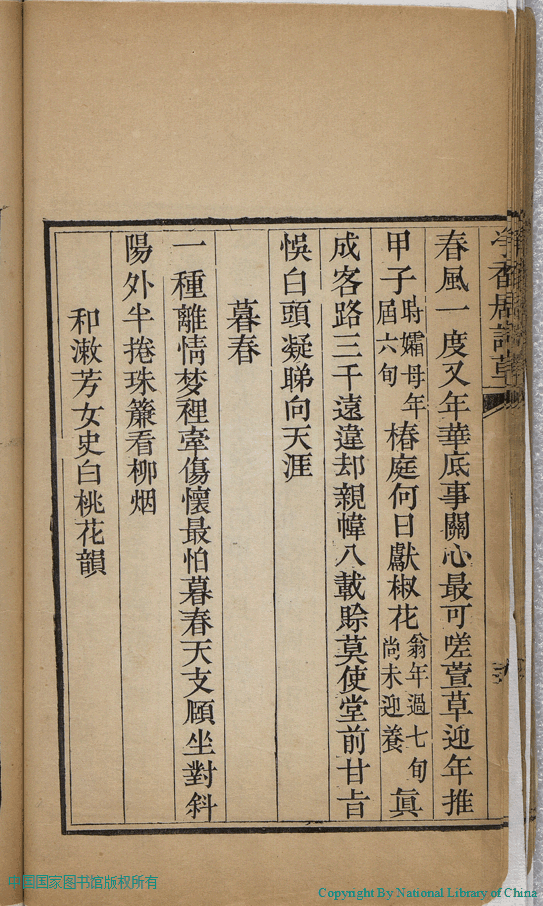 香居詩草
春風一度又年華底事關心最可嗟萱草迎年推
甲子旹孀母年屆六旬椿庭何日獻椒花翁年過七旬尚未迎養眞
成客路三千遠違却親幃八載賒莫使堂前甘旨
悞白頭凝睇向天涯
暮春
一種離情梦裡牽傷懷最怕暮春天支頤坐對斜
陽外半捲珠簾看柳烟
和漱芳女史白桃花韻
中国国家图书馆版权所有
Copyright By National Library of China